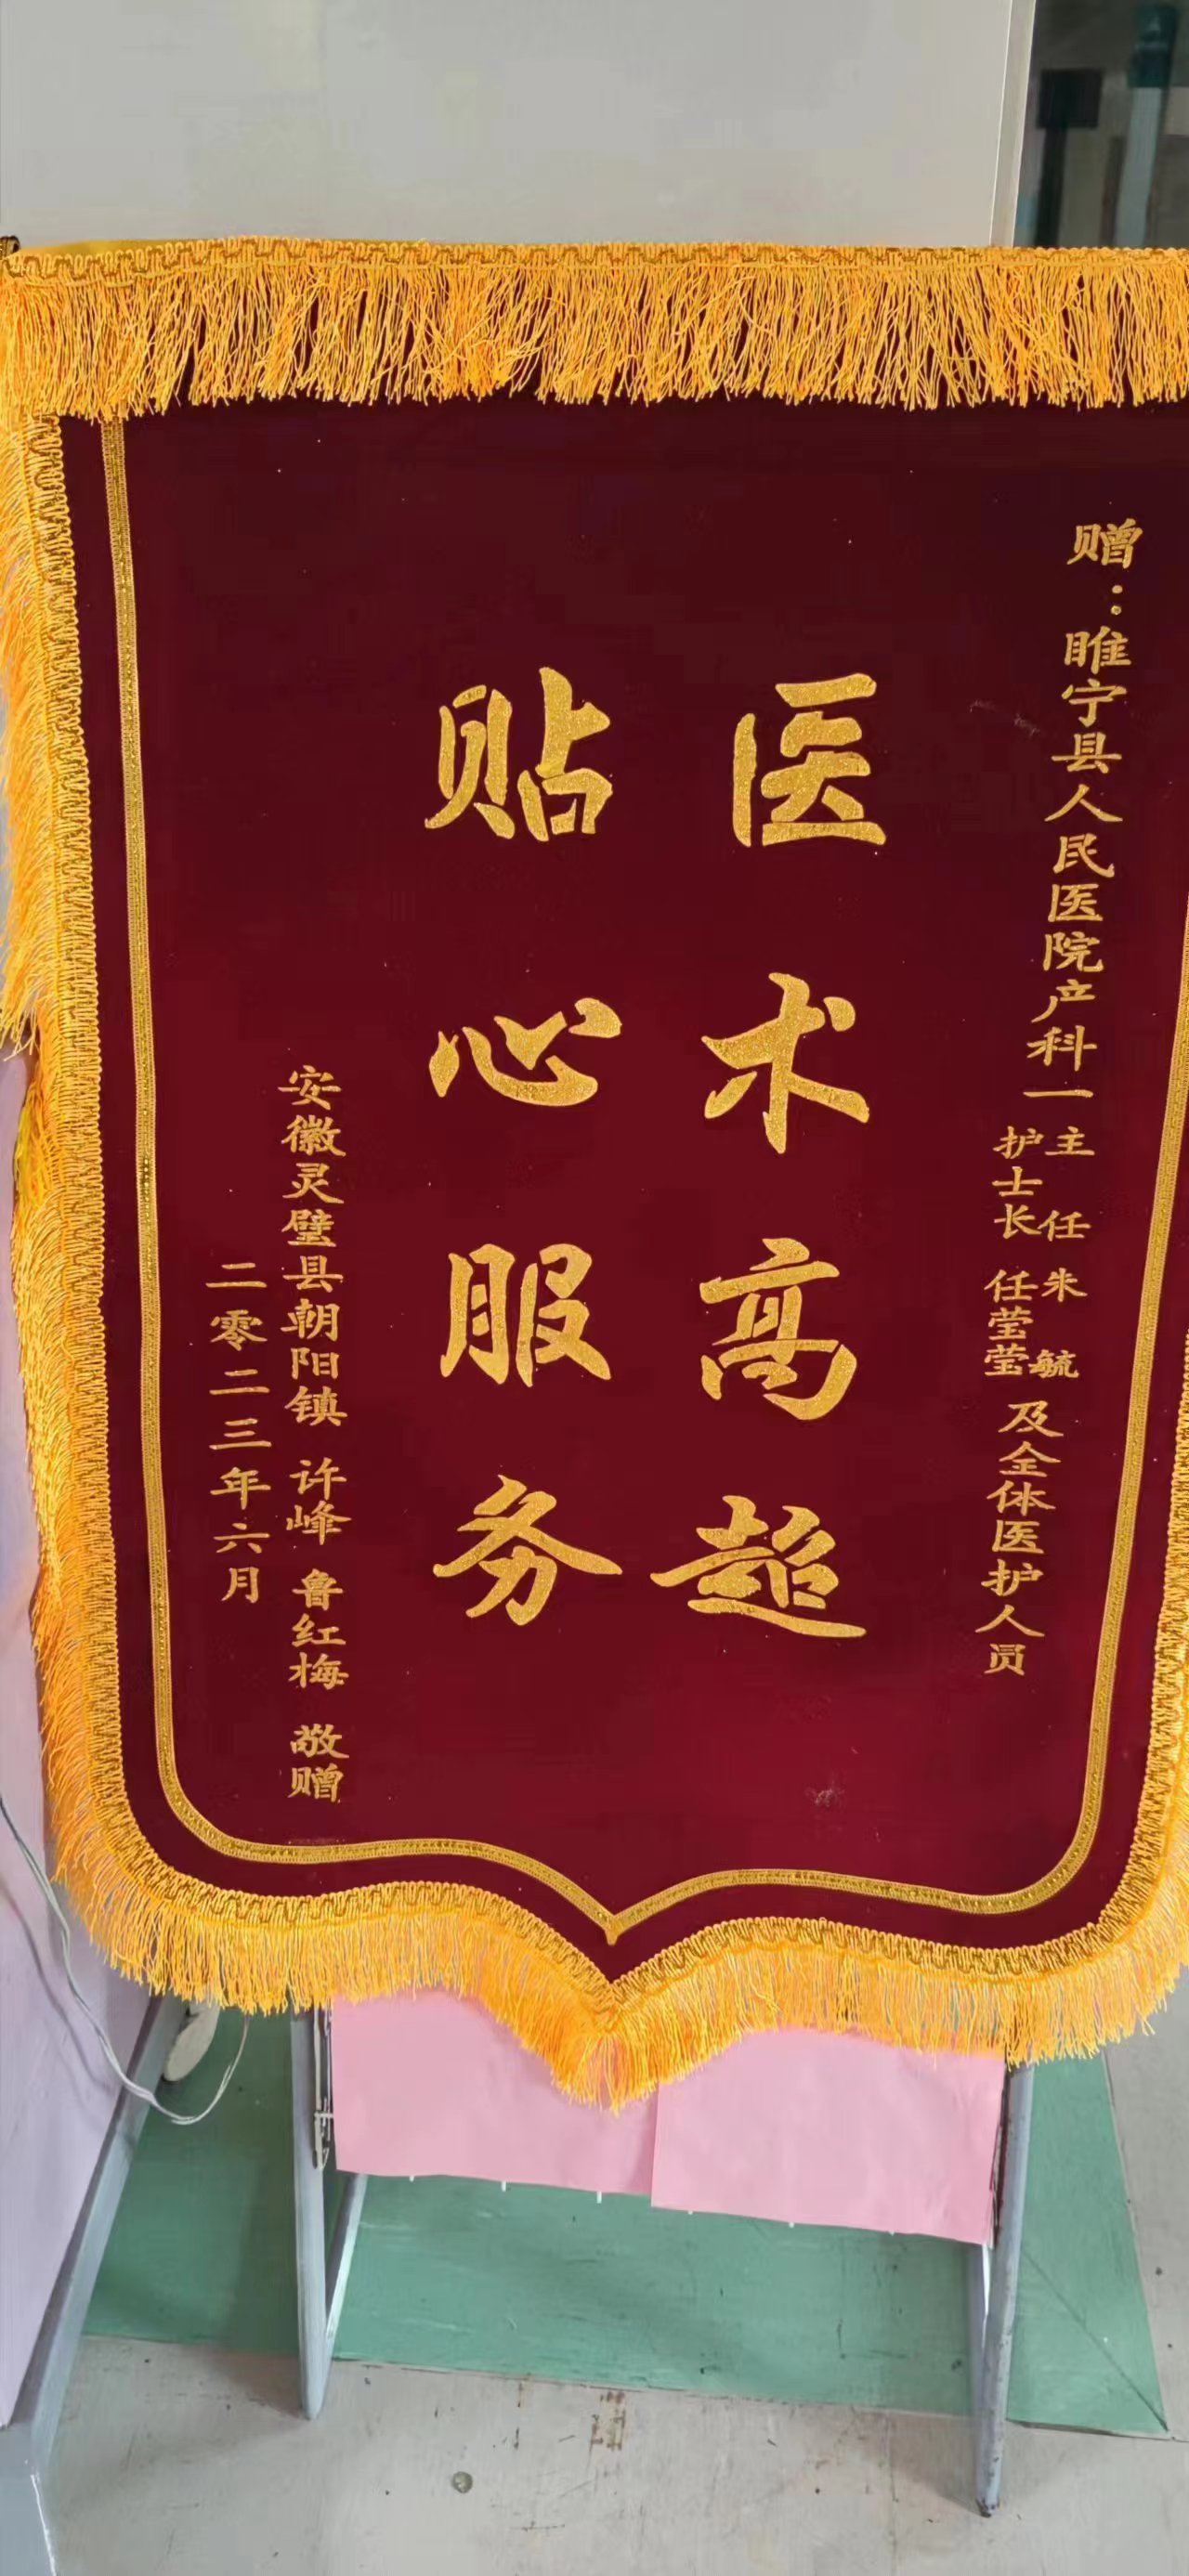 赠：睢宁县人民医院产科一
主任 朱毓
护士长 任莹莹
及全体医护人员
医术高超
贴心服务
安徽灵璧县朝阳镇 许峰 鲁红梅 敬赠
二零二三年六月